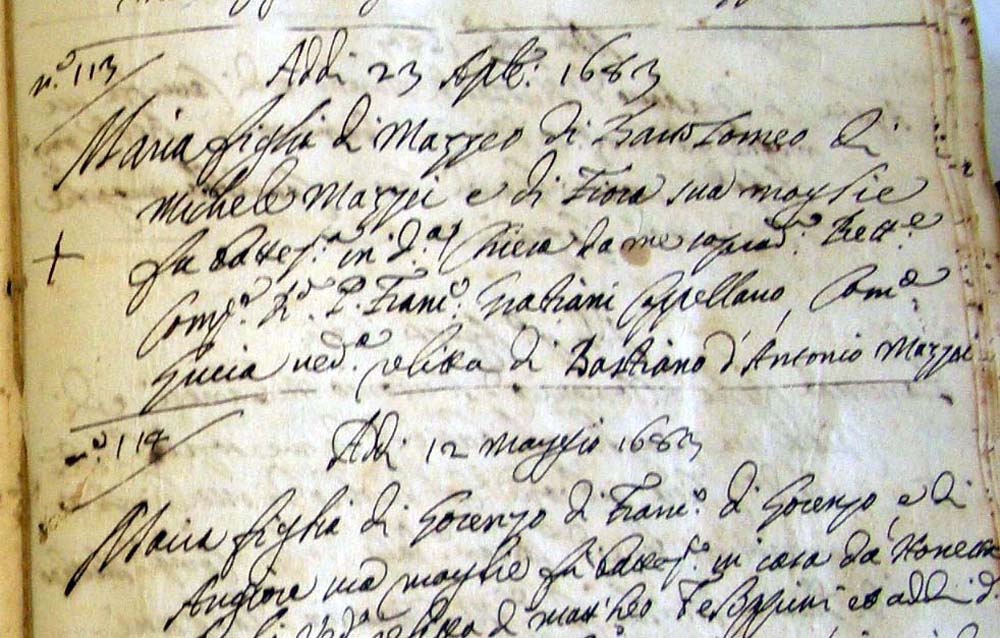 n.º 113
Addi 23 Aple: 1683
Maria figlia di Mazzeo di Bartolomeo di
Michele Mazzei e di Fiora sua moglie
fu battez.ª in d.ª Chiesa da me soprad.º Rett.e
Comp.e P. Franc.º Gratiani Cappellano, Com.e
Lucia ved.ª relitta di Bastiano d'Antonio Mazzei
n.º 114
Addi 12 Maggio 1683
Maria figlia di Lorenzo di Franc.º di Lorenzo, e di
Angiora sua moglie fu battez.ª in casa da
di Matteo et addi